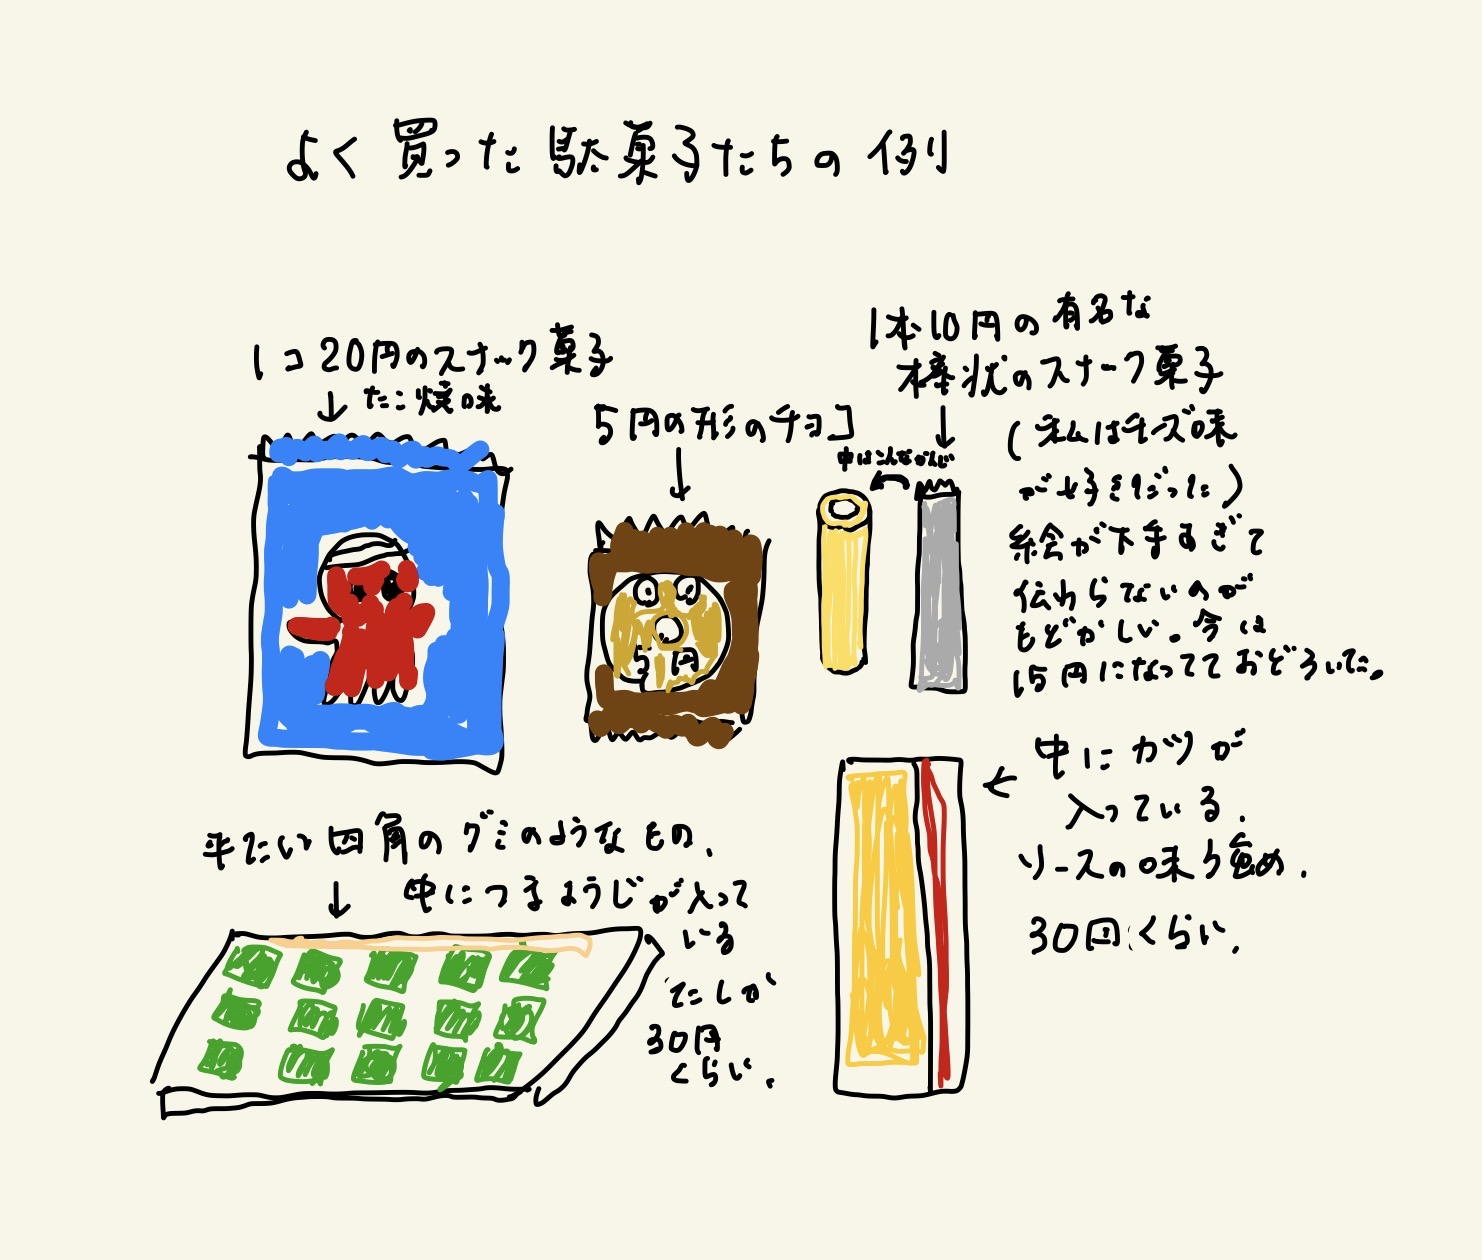 よく買った駄菓子たちの例
1コ20円のスナック菓子
たこ焼味
5円の形のチョコ
1本10円の有名な
棒状のスナック菓子
中はこんなかんじ
(私はチーズ味
が好きだった)
絵が下手すぎて
伝わらないのが
もどかしい。今は
15円になってておどろいた。
5円
中にカツが
入っている.
ソースの味う強め.
30回くらい.
平たい四角のグミのようなもの.
中につまようじが入って
いる
たしか
30円
くらい.